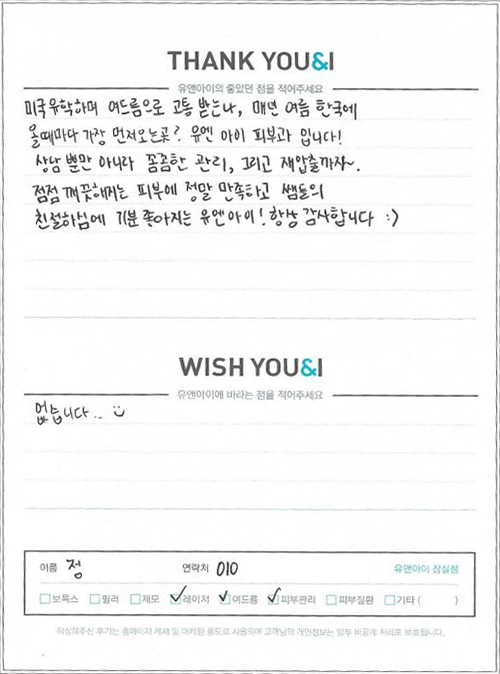 THANK YOU&I
유앤아이의 좋았던 점을 적어주세요
미국유학하며 여드름으로 고통 받는나, 매년 여름 한국에
올때마다 가장 먼저오는곳? 유엔 아이 피부과 입니다!
상담 뿐만 아니라 꼼꼼한 관리, 그리고 재압출까지~.
점점 깨끗해지는 피부에 정말 만족하고 쌤들의
친절하심에 기분 좋아지는 유엔아이! 항상 감사합니다 :)
WISH YOU&I
유앤아이에 바라는 점을 적어주세요
없습니다...
이름 정 연락처 010 유앤아이 잠실점
보톡스 필러 제모 레이저 여드름 피부관리 피부질환 기타 ( )
작성해주신 후기는 홈페이지 게재 및 마케팅 용도로 사용되며 고객님의 개인정보는 일부 비공개 처리로 보호됩니다.